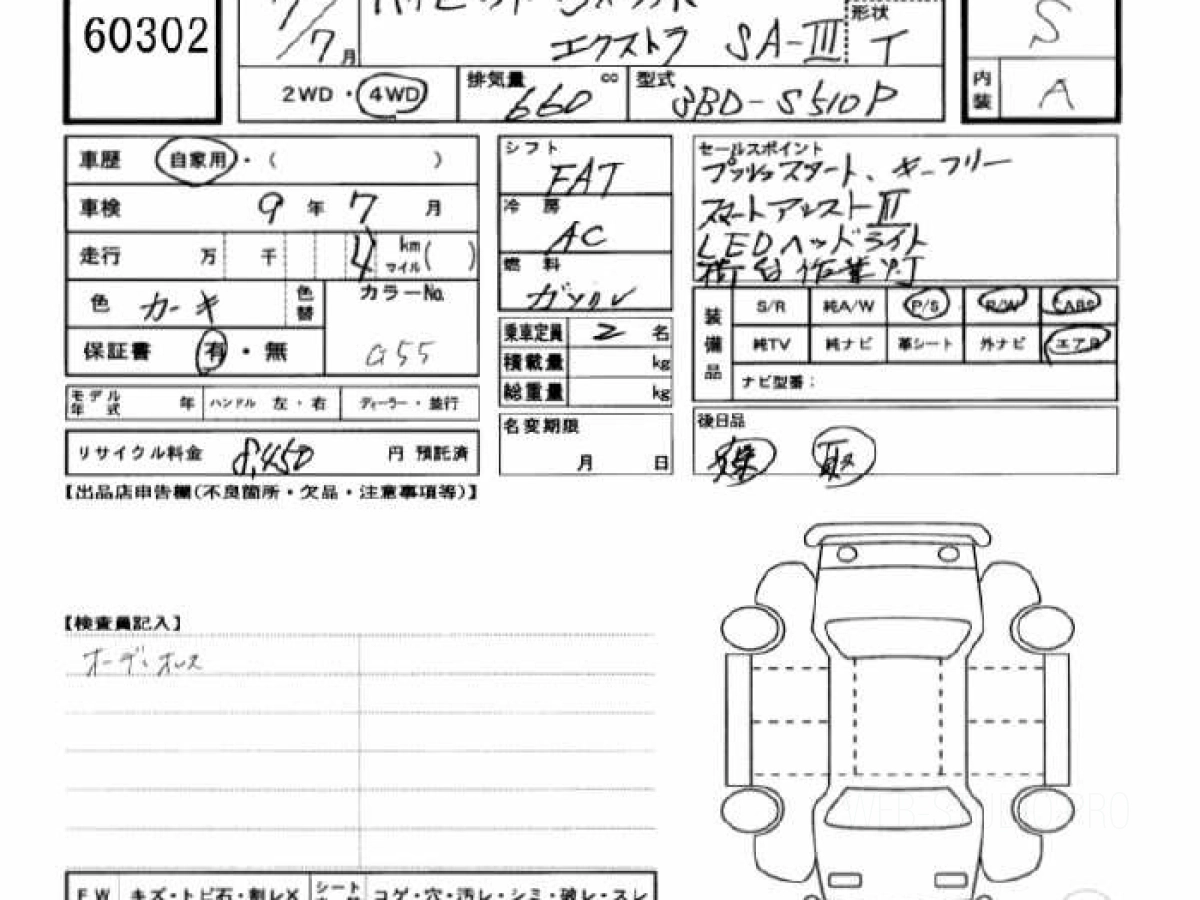 60302
7
7月
エクストラ SA-III
形状
T
S
2WD・4WD
排気量 660 cc
型式 3BD-S510P
内装 A
車歴 自家用・( )
車検 9年 7月
走行 万 千 4 km マイル( )
色 カーキ
色替
カラーNo.
G55
保証書 有・無
モデル年式 年
ハンドル 左・右
ディーラー・並行
リサイクル料金 8,450 円 預託済
シフト
FAT
冷房
AC
燃料
ガソリン
乗車定員 2 名
積載量 kg
総重量 kg
名変期限
月 日
セールスポイント
プッシュスタート、キーフリー
スマートアシストIII
LEDヘッドライト
荷台作業灯
装備品
S/R 純A/W P/S R/W ABS
純TV 純ナビ 革シート 外ナビ エアB
ナビ型番:
後日品
保 取
【出品店申告欄(不良箇所・欠品・注意事項等)】
【検査員記入】
オーディオレス
FW キズ・トビ石・割レX シート コゲ・穴・汚レ・シミ・破レ・スレ